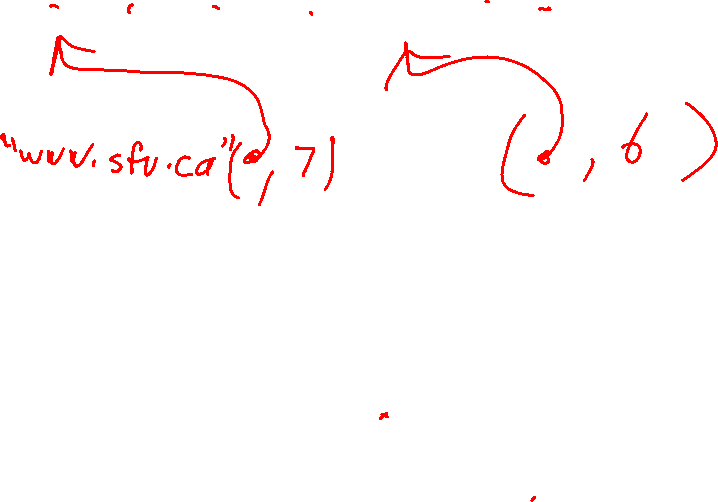 "www.sfu.ca"( , 7) ( , 6 )